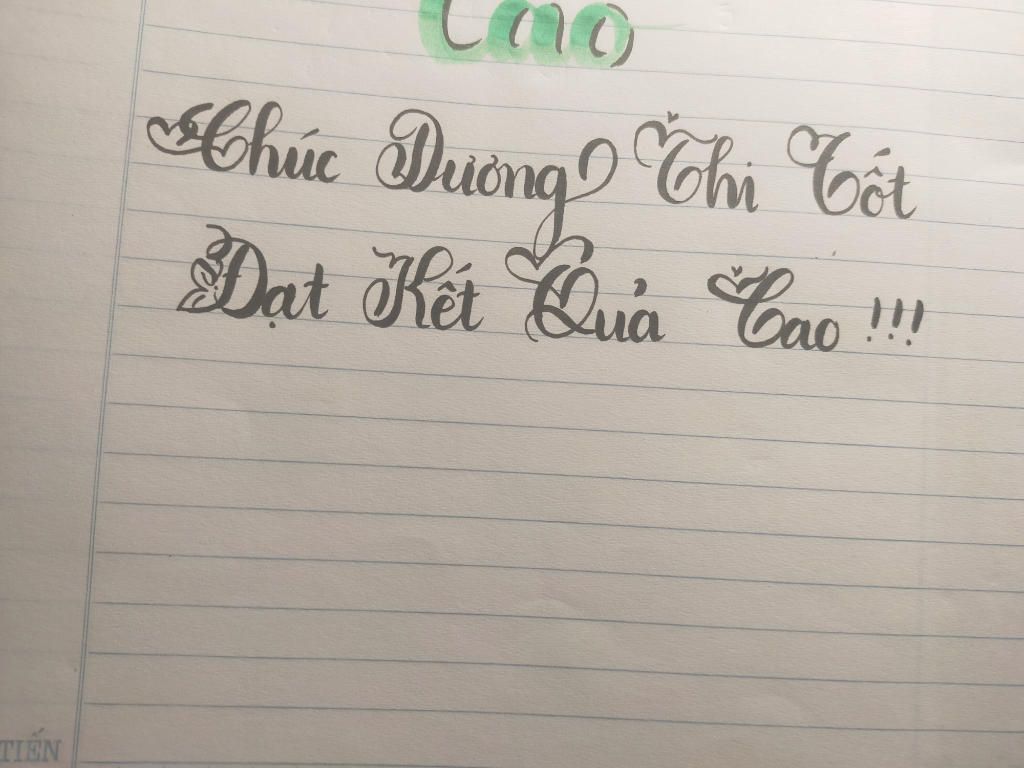 Cao
Chúc Dương Thi Tốt
Đạt Kết Quả Cao !!!
TIẾN